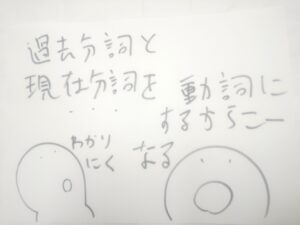 過去分詞と
現在分詞を 動詞に
するからこー
わかり
にく なる